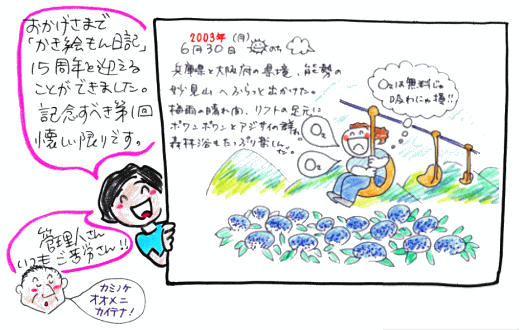 おかげさまで
「かき絵もん日記」
15周年を迎える
ことができました。
記念すべき第1回
懐しい限りです。
管理人さん
いつもご苦労さん!!
カミノケ
オオメニ
カイテナ!
2003年(月)
6月30日 のち
兵庫県と大阪府の県境、能勢の
妙見山へふらっと出かけた。
梅雨の晴れ間、リフトの足元に
ポワンポワンとアジサイの群れ。
森林浴もたっぷり楽しんだ。
O₂は無料じゃ
吸わにゃ損!!
O₂
O₂